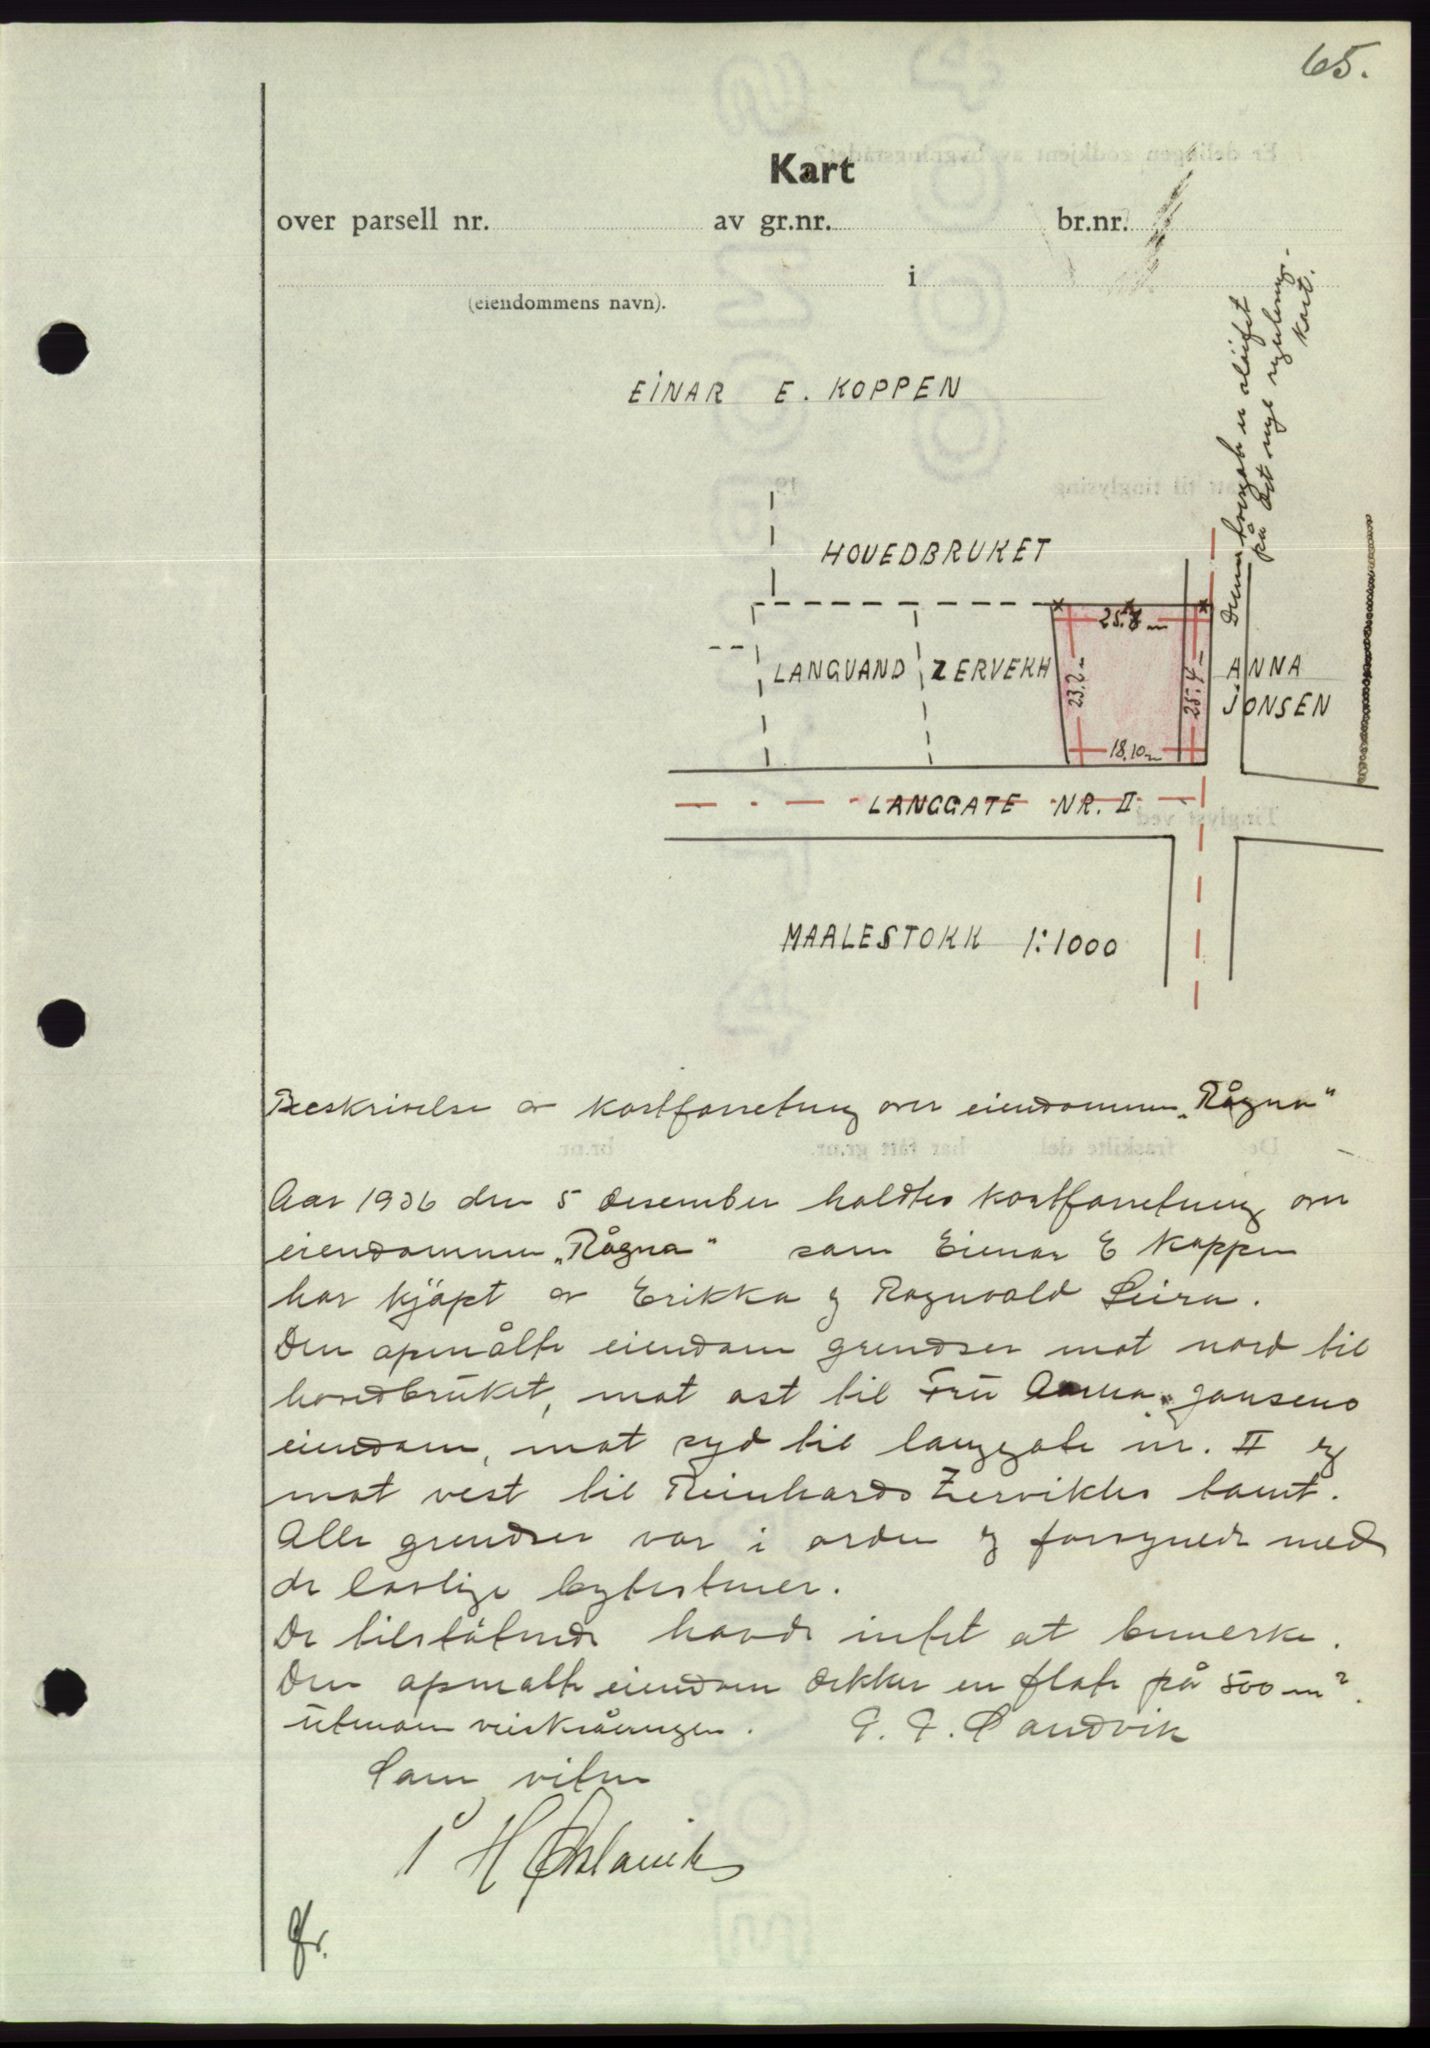 65.
Kart
over parsell nr. av gr.nr. br.nr.
i
(eiendommens navn).
EINAR E. KOPPEN
Denne tvergate er sløifet
på det nye regulerings-
kart.
HOVEDBRUKET
25.8 m
LANGVAND ZERVEKH 23.2 m 25.4 m ANNA
JONSEN
18.10 m
LANGGATE NR. II
MAALESTOKK 1:1000
Beskrivelse av kartforretning over eiendommen „Rågna"
Aar 1936 den 5 desember holdtes kartforretning over
eiendommen „Rågna" som Einar E Koppen
har kjöpt av Erikka og Ragnvald Leira.
Den opmålte eiendom grendser mot nord til
hovedbruket, mot ost til Fru Anna Jonsens
eiendom, mot syd til langgate nr. II og
mot vest til Reinhards Zervikhs tomt.
Alle grendser var i orden og forsynede med
de lovlige bytestener.
De tilstötende havde intet at bemerke.
Den opmalte eiendom dekker en flate på 500 m².
utenom veiskråningen. Sandvik
Som vitne
fr.